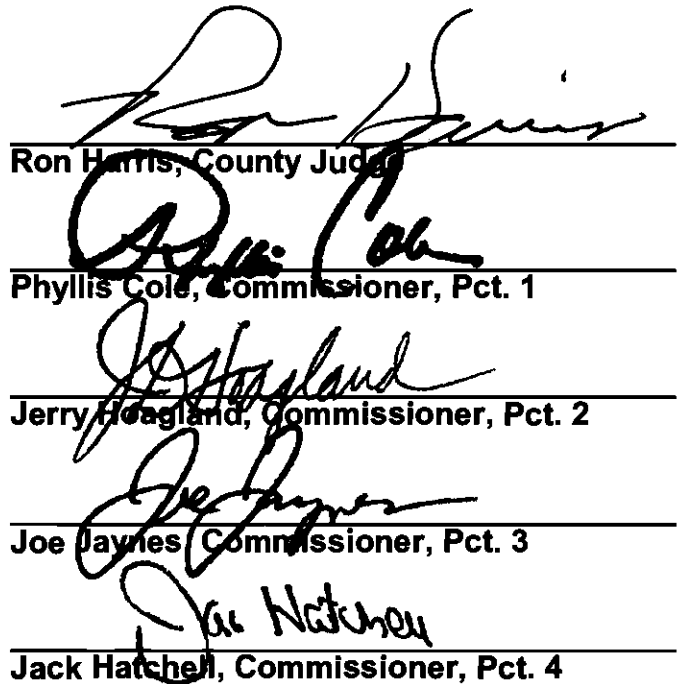 Ron Harris
Ron Harris, County Judge
Phyllis Cole
Phyllis Cole, Commissioner, Pct. 1
J D Hoagland
Jerry Hoagland, Commissioner, Pct. 2
Joe Jaynes
Joe Jaynes, Commissioner, Pct. 3
Jack Hatchell
Jack Hatchell, Commissioner, Pct. 4